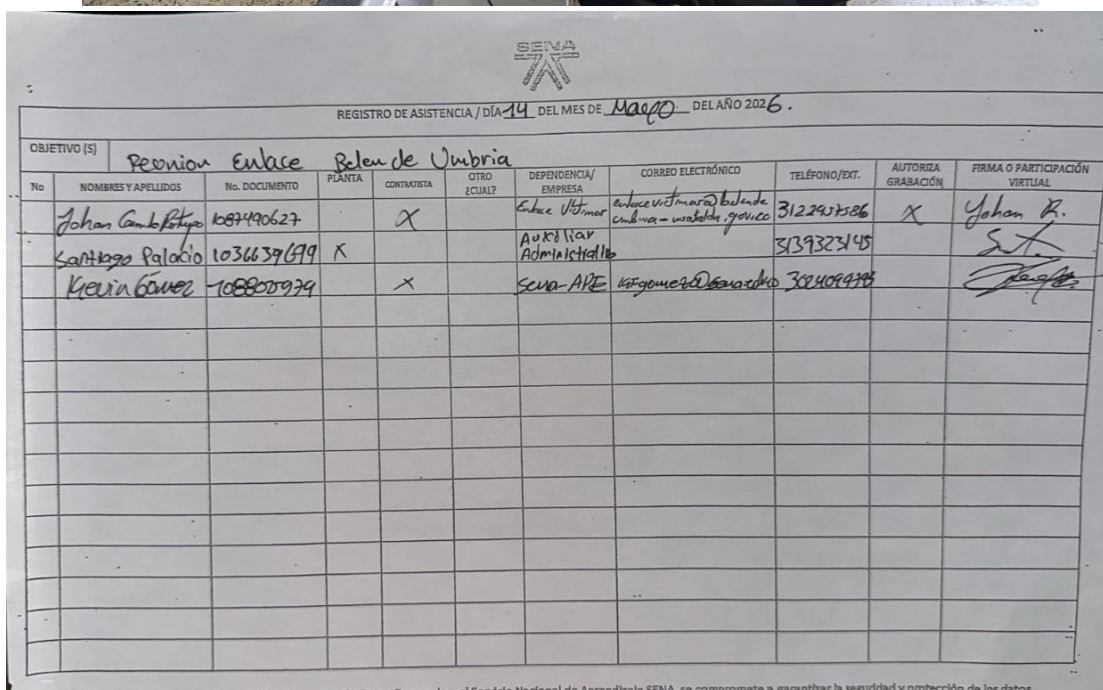 SENA
REGISTRO DE ASISTENCIA / DÍA 14 DEL MES DE Marzo DEL AÑO 2026.
OBJETIVO (S) Reunion Enlace Belen de Umbria
No NOMBRES Y APELLIDOS No. DOCUMENTO PLANTA CONTRATISTA OTRO ¿CUAL? DEPENDENCIA/ EMPRESA CORREO ELECTRÓNICO TELÉFONO/EXT. AUTORIZA GRABACIÓN FIRMA O PARTICIPACIÓN VIRTUAL
Johan Camilo 1087490627 X Enlace 3122957586 X Yohan R.
Santiago Palacio 1036639699 X Auxiliar Administrativo 3139323145
Kevin Gómez X Sena-APE
el Servicio Nacional de Aprendizaje SENA, se compromete a garantizar la seguridad y protección de los datos